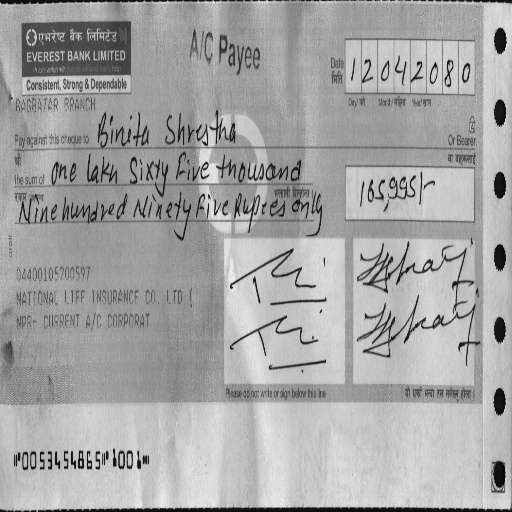 एभरेष्ट बैंक लिमिटेड
EVEREST BANK LIMITED
Consistent, Strong & Dependable
A/C Payee
Date
मिति
12042080
Day/ गते Month/ महिना Year/ साल
BAGBAZAR BRANCH
Pay against this cheque to Binita Shrestha Or Bearer
श्री वा वाहकलाई
the sum of One lakh Sixty Five thousand
Nine hundred Ninety Five Rupees only
165,995/-
04400105200597
NATIONAL LIFE INSURANCE CO. LTD (
NPR- CURRENT A/C CORPORAT
Please do not write or sign below this line
⑈0053454865⑈ 1001⑈